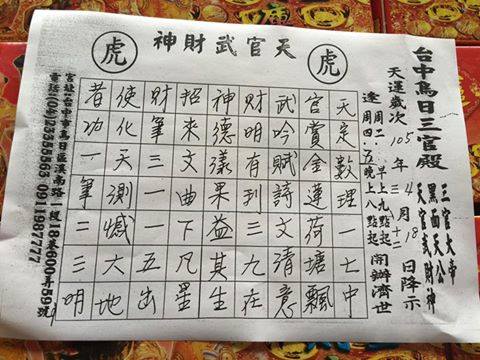 台中烏日三官殿
三官大帝
黑面天公
天官武財神
天運歲次105年4月18日降示
三 十二
逢周二、早上九點起
周四、五晚上八點起
開辦濟世
虎
天官武財神
虎
天定數理一七中
官賞金蓮荷塘飄
武吟賦詩文清意
財明有到三九在
神德漾果益其生
招來文曲下凡星
財筆三一一五出
使化天測憾大地
者功一筆二三明
宮址:台中市烏日區溪南路一段18巷600弄59號
電話:(04)23355563 0911987777